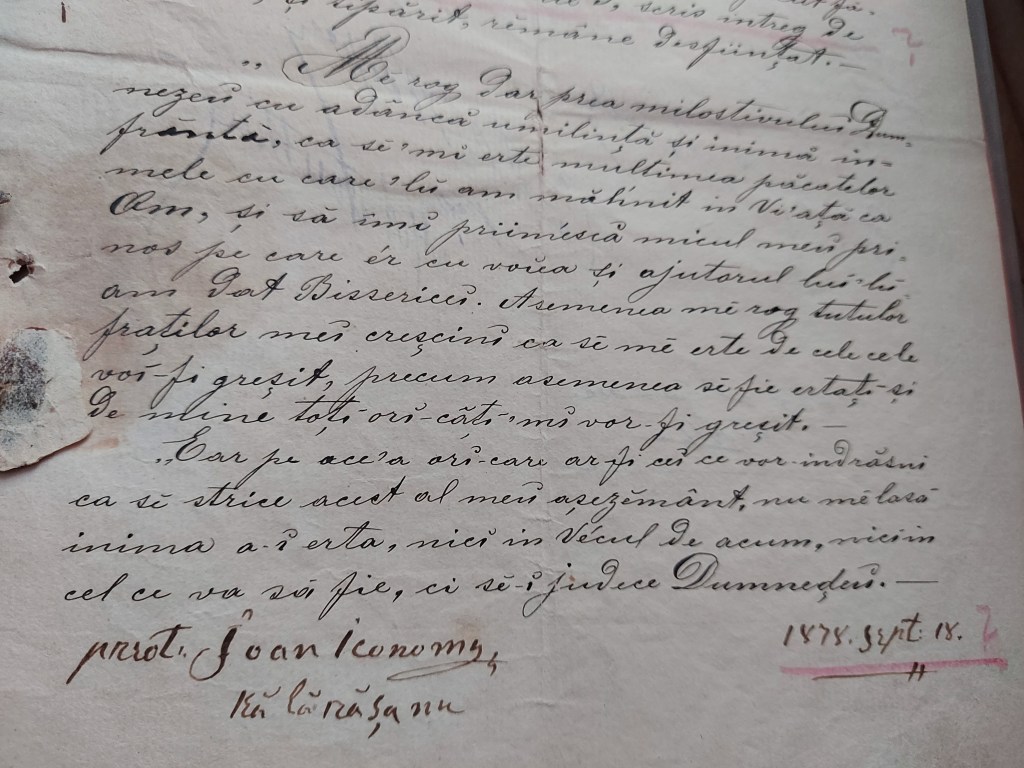 scris intreg de
și tipărit, rĕmâne desființat. —
„ Mĕ rog dar prea milostivului Dum-
nezeŭ cu adâncă umilintă și inimă in-
frântă, ca sĕ 'mi erte multimea păcatelor
mele cu care 'lŭ am măhnit in Vi'ață ca
Om, și să îmĭ priimescă micul meŭ pri-
nos pe care ér cu voea și ajutorul luĭ-lŭ-
am dat Bissericiĭ. Asemenea mĕ rog tutulor
fraților meĭ creșcinĭ ca sĕ mĕ erte de cele cele
voĭ-fi greșit, precum asemenea sĕ fie ertațĭ-și
de mine toțĭ orĭ-câțĭ 'mĭ vor-fi greșit. —
„Ear pe ace'a orĭ-care ar fi ceĭ ce vor indrăsni
ca sĕ strice acest al meŭ așezĕmânt, nu mĕ lasă
inima a-ĭ erta, nicĭ in Vécul de acum, nicĭ in
cel ce va să fie, ci sĕ-ĭ judece Dumnedeŭ. —
prot. Ioan Iconomu,
Kălărășanu
1878. Sept. 18.